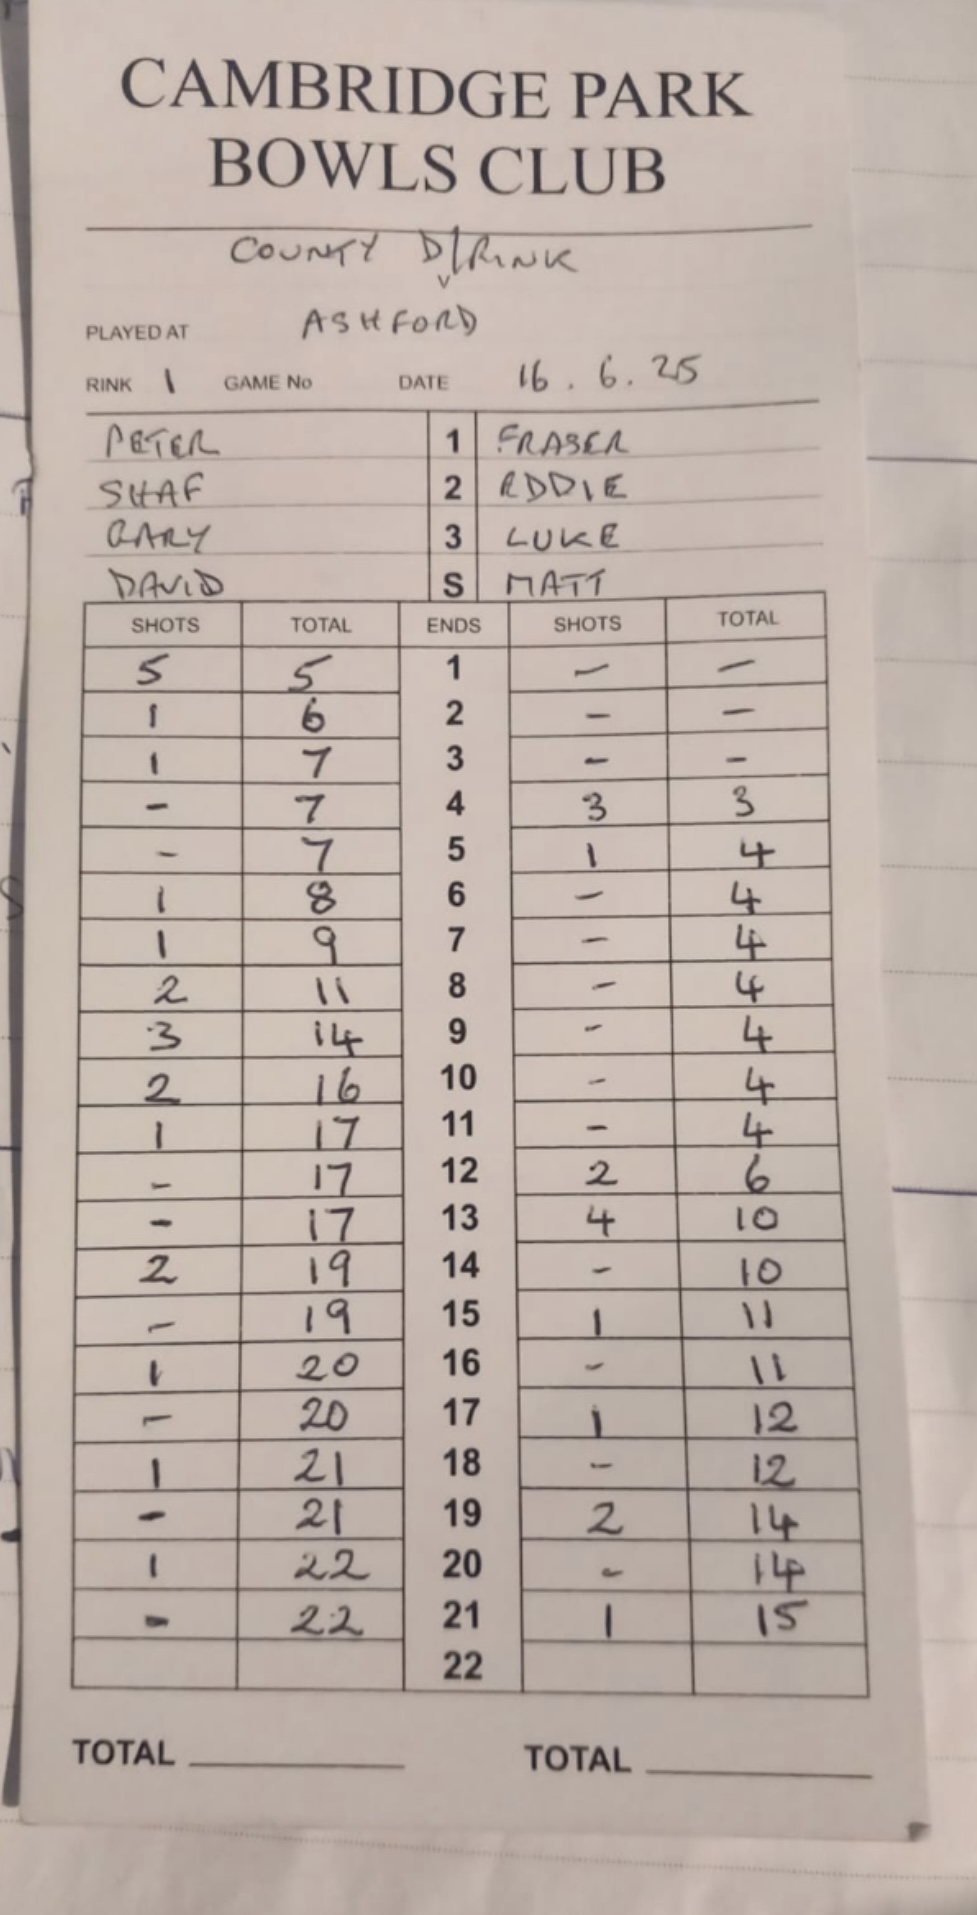 CAMBRIDGE PARK
BOWLS CLUB
COUNTY D/RINK
v
PLAYED AT ASHFORD
RINK 1 GAME No DATE 16.6.25
PETER 1 FRASER
SHAF 2 EDDIE
GARY 3 LUKE
DAVID S MATT
SHOTS TOTAL ENDS SHOTS TOTAL
5 5 1 - -
1 6 2 - -
1 7 3 - -
- 7 4 3 3
- 7 5 1 4
1 8 6 - 4
1 9 7 - 4
2 11 8 - 4
3 14 9 - 4
2 16 10 - 4
1 17 11 - 4
- 17 12 2 6
- 17 13 4 10
2 19 14 - 10
- 19 15 1 11
1 20 16 - 11
- 20 17 1 12
1 21 18 - 12
- 21 19 2 14
1 22 20 - 14
- 22 21 1 15
22
TOTAL TOTAL